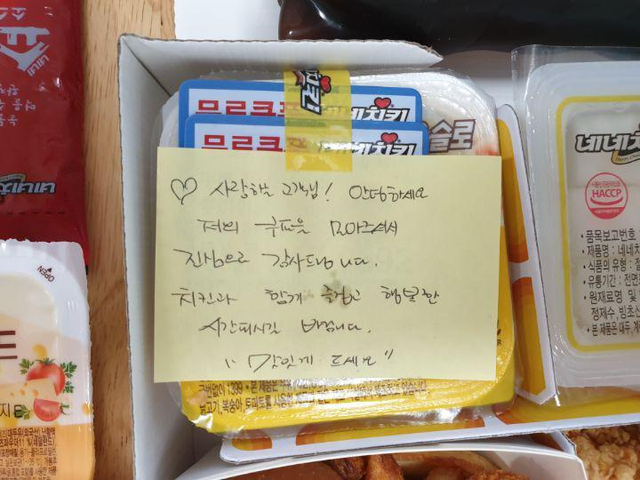 무료쿠폰
네네치킨
무료쿠폰
네네치킨
슬로
♡ 사랑하는 고객님! 안녕하세요
저희 쿠폰을 모아주셔서
진심으로 감사드립니다.
치킨과 함께 즐겁고 행복한
시간되시길 바랍니다.
"맛있게 드세요"
네네치킨
OPEN
네네치
HACCP
품목보고번호
제품명 : 네네치
식품의 유형 :
유통기한 : 전면
원재료명 및
정제수, 빙초산
본 제품은 대두,